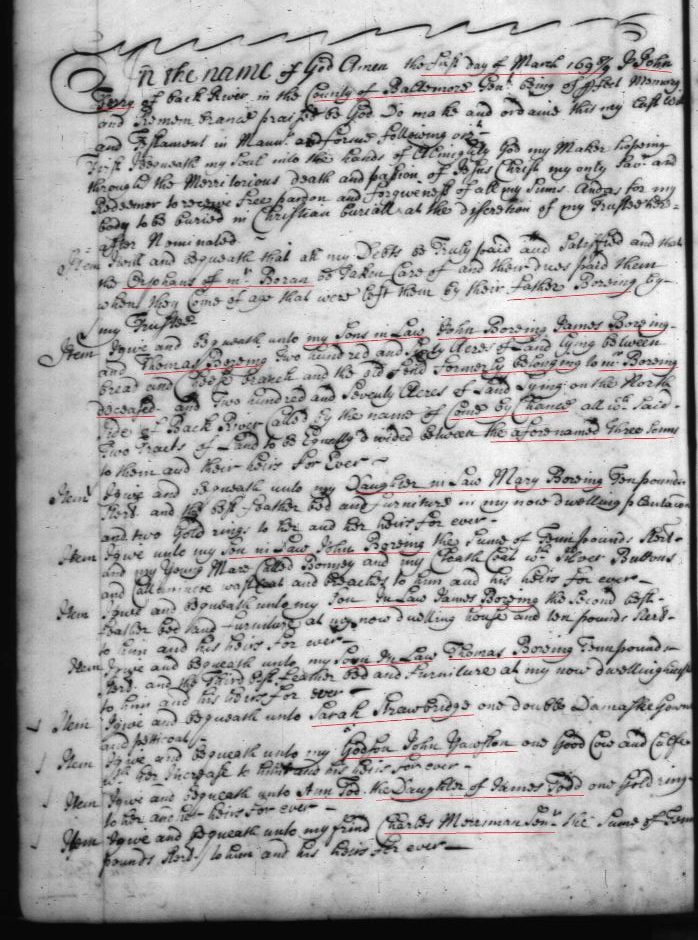 In the name of God Amen the first day of March 169 I John
Ferry of back River in the County of Baltemore Gent being of pfect Memory
and Remembrance praised be God Do make and ordaine this my Last Will
and Testament in Mannr and forme following
First I bequeath my Soul into the hands of Almighty God my Maker hopeing
through the Merritorious death and passion of Jesus Christ my only Savr and
Redeemer to receive free pardon and forgiveness of all my Sinns. And as for my
body to be buried in Christian buriall at the discretion of my Trustee here=
after Nominated
Item I will and bequeath that all my Debts be Truly paid and Satisfied and that
the Orphans of mr Boran be Taken Care of and their dues paid them
when they Come of age that were left them by their father Boreing by
my Trustee
Item I give and bequeath unto my Sons in Law John Boreing James Boreing
and Thomas Boreing Two hundred and Acres of Land lying between
bread and Cheese branch and the old formerly belonging to mr Boreing
deceased and Two hundred and Seventy Acres of Land Lying on the North
Side of Back River Called by the name of Come by Chance all wch Said
Two Tracts of Land to be Equally divided between the aforenamed Three Sonns
to them and their heirs for Ever
Item I give and bequeath unto my Daughter in Law Mary Boreing Ten pounds
Sterl and the best feather bed and furniture in my now dwelling plantacon
and two Gold rings to her and her heirs for ever
Item I give unto my Son in Law John Boreing the Sume of Tenn pounds Sterl
and my Young Mare Called Bonney and my Cloath Coat wth Silver Buttons
and Callaminco wastcoat and breaches to him and his heirs for ever
Item I give and bequeath unto my Son in Law James Boreing the Second best
feather bed and furniture at my now dwelling house and ten pounds Sterl
to him and his heirs for ever
Item I give and bequeath unto my Sonn In Law Thomas Boreing Tenn pounds
Sterl and the Third best feather bed and furniture at my now dwelling house
to him and his heirs for ever
Item I give and bequeath unto Sarah Strawbridge one double Damaske Gowne
and petticoat
Item I give and bequeath unto my Godson John one Good Cow and Calfe
wth her Increase to him and his heirs for ever
Item I give and bequeath unto Ann Tod the Daughter of James Todd one Gold ring
to her and her heirs for ever
Item I give and bequeath unto my frind Charles Merriman Senr the Sume of Tenn
pounds Sterl to him and his heirs for ever